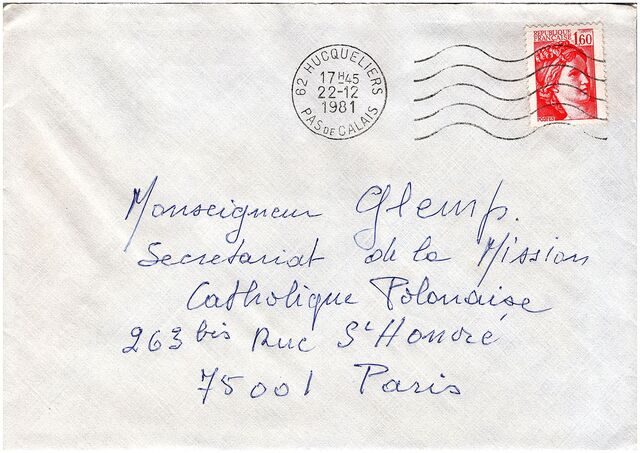 62 HUCQUELIERS
17H45
22-12
1981
PAS DE CALAIS
REPUBLIQUE
FRANCAISE 1,60
POSTES
Monseigneur Glemp.
Secretariat de la Mission
Catholique Polonaise
263 bis Rue St Honoré
75001 Paris